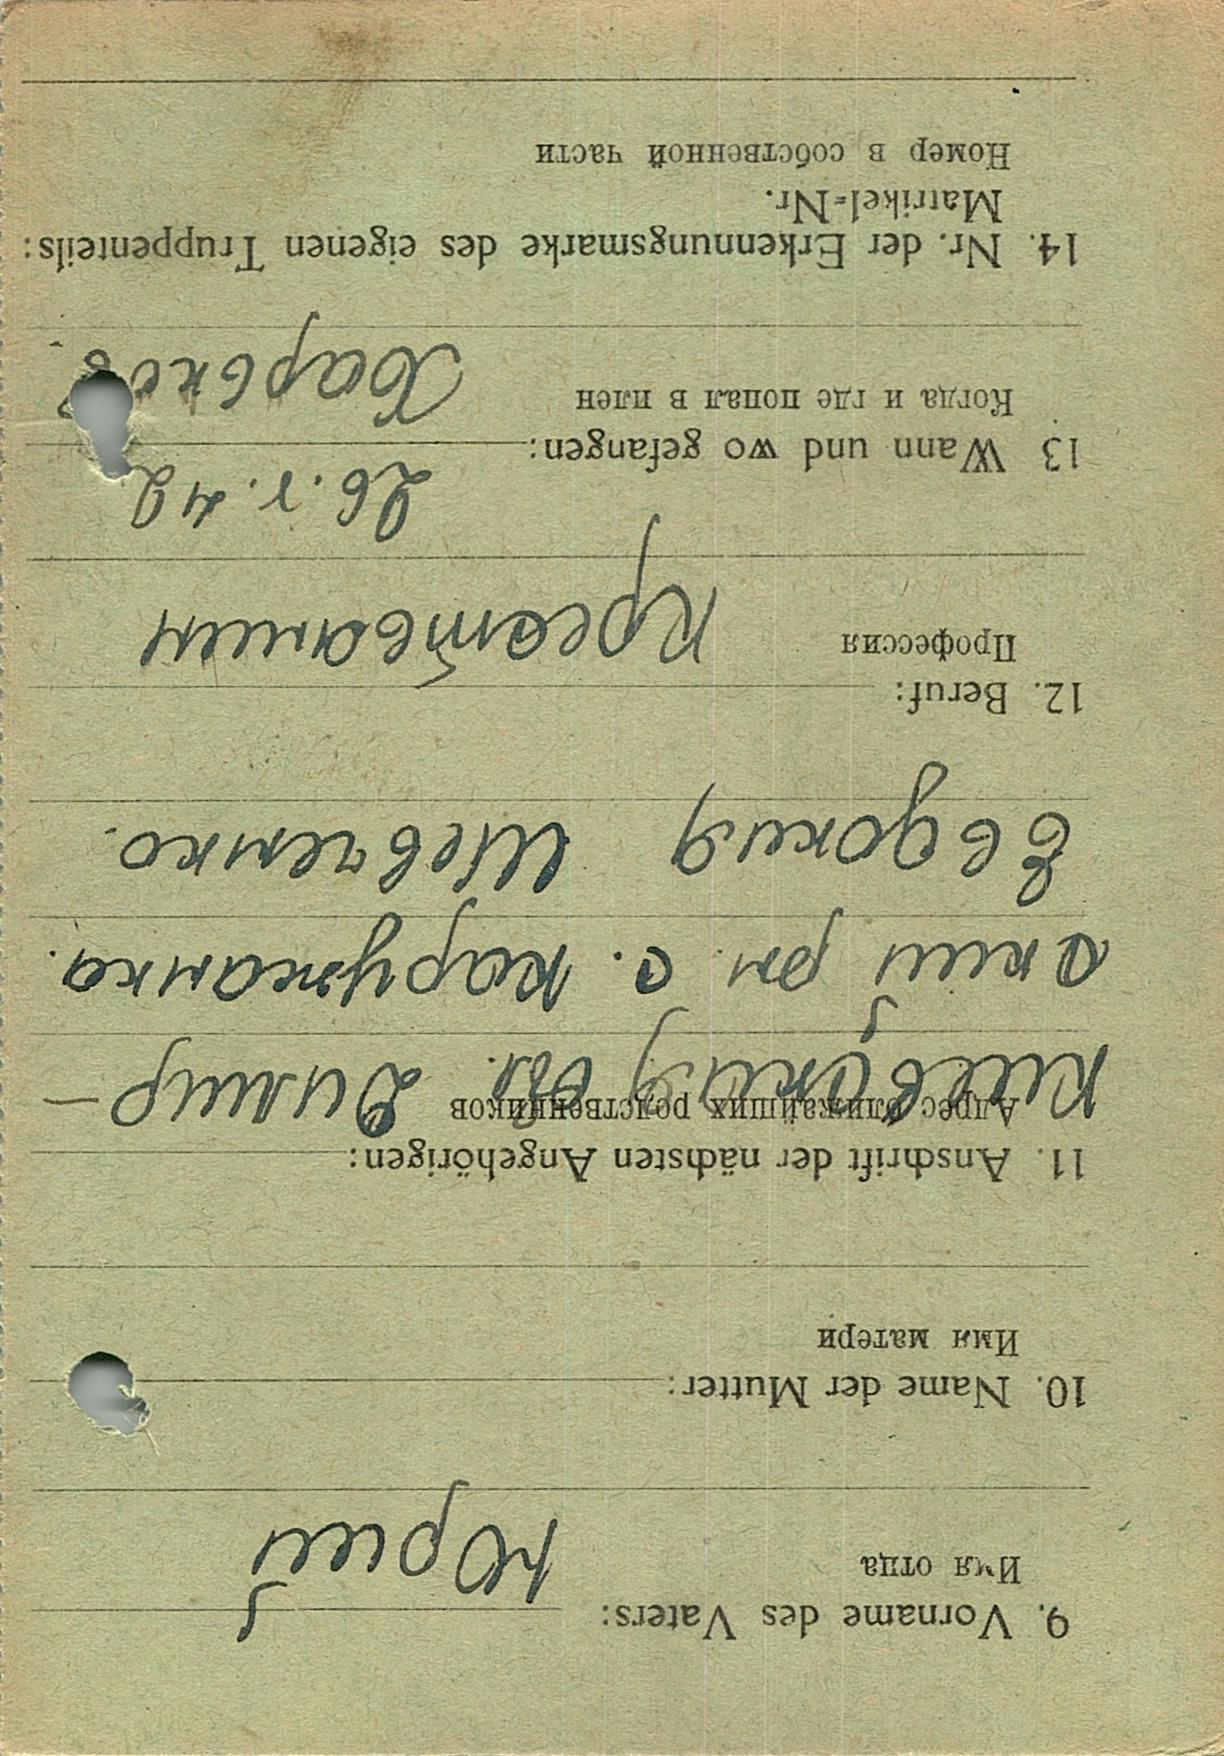 9. Vorname des Vaters:
Имя отца
Юрий
10. Name der Mutter:
Имя матери
11. Anschrift der nächsten Angehörigen:
Адрес ближайших родственников
Киевская обл. Димир-
ский рн. с. Каружанка.
Евдокия Шевченко.
12. Beruf:
Профессия
Крестьянин
13 Wann und wo gefangen:
26.V.42
Когда и где попал в плен
Харьков
14. Nr. der Erkennungsmarke des eigenen Truppenteils:
Matrikel-Nr.
Номер в собственной части